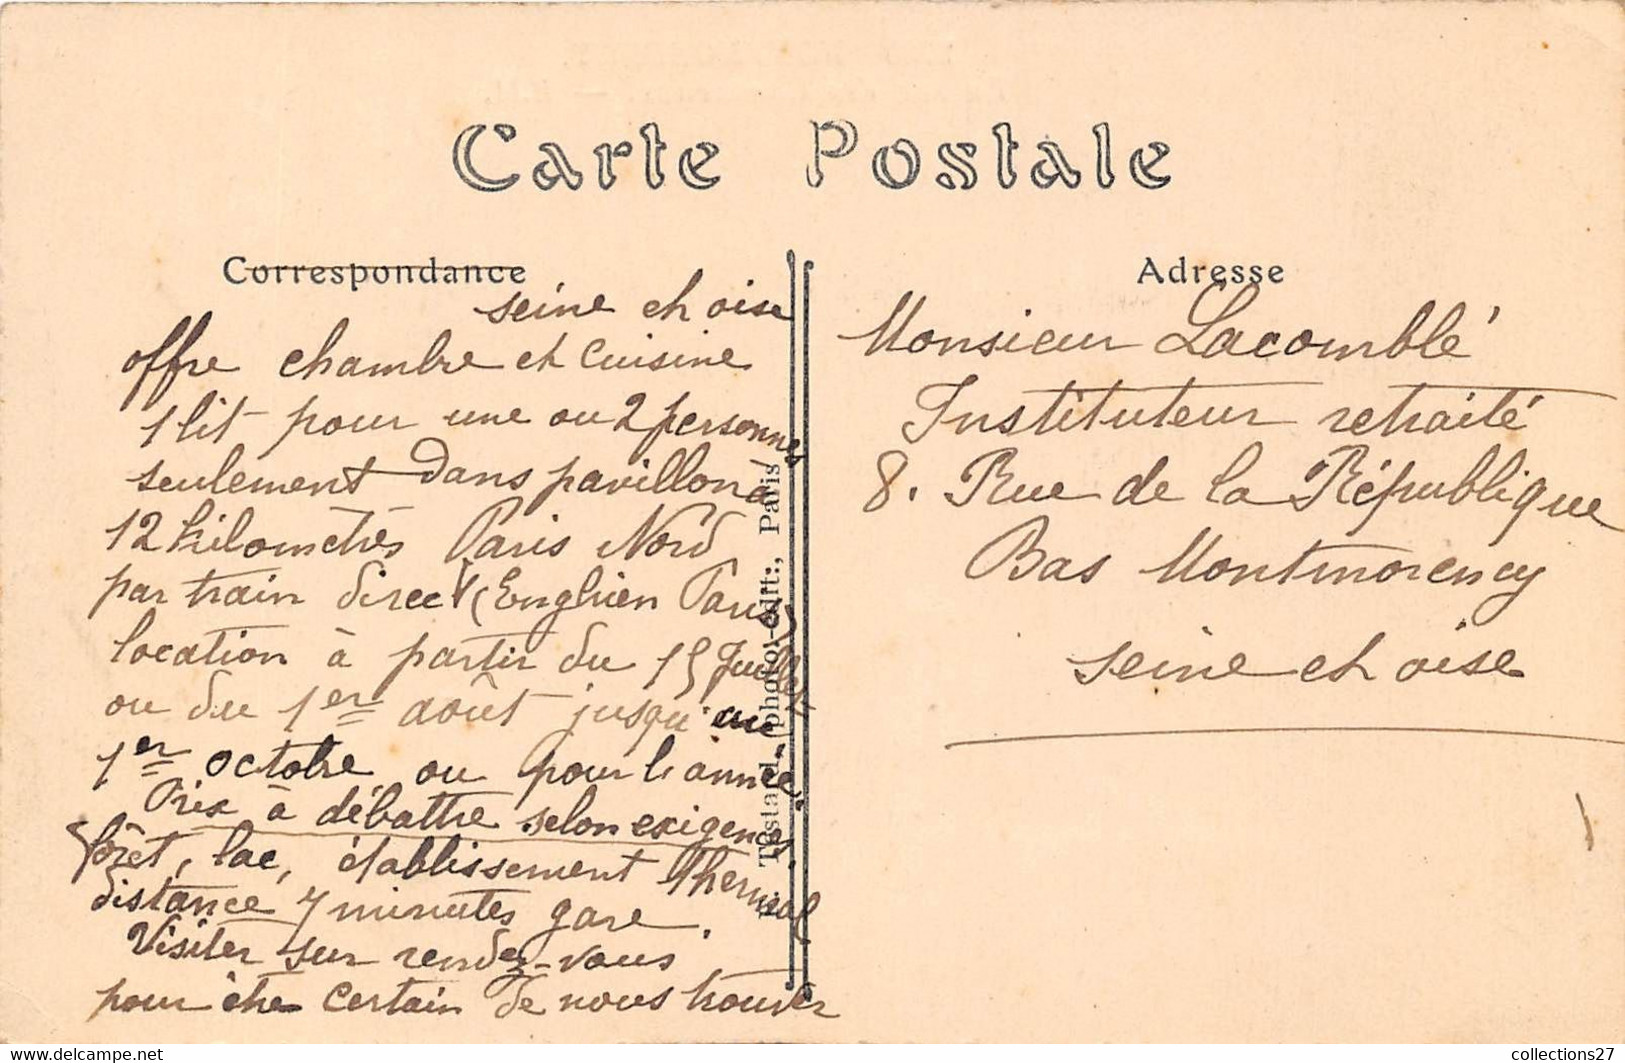 Carte Postale
Correspondance
seine et oise
offre chambre et cuisine
1 lit pour une ou 2 personnes
seulement dans pavillon à
12 kilomètres Paris Nord
par train direct (Enghien Paris)
location à partir du 15 Juillet
ou du 1er août jusqu'au
1er octobre ou pour l'année.
Prix à débattre selon exigences,
forêt, lac, établissement thermal
distance 7 minutes gare.
Visiter sur rendez-vous
pour être certain de nous trouver
Tostain, photo-édit., Paris
Adresse
Monsieur Lacomblé
Instituteur retraité
8. Rue de la République
Bas Montmorency
seine et oise
collections27